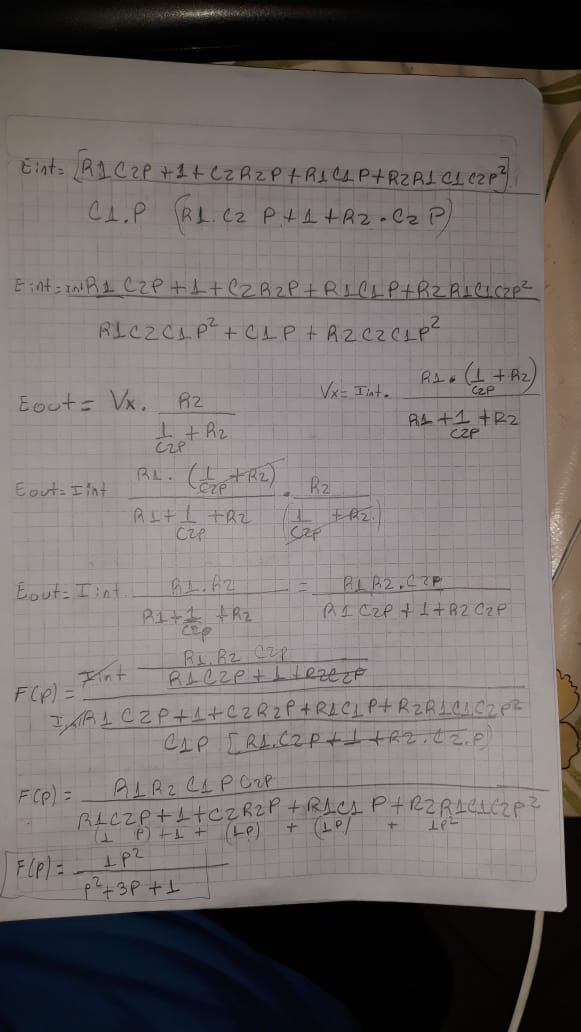 Eint= [R1C2P+1+C2R2P+R1C1P+R2R1C1C2P²]
C1.P (R1.C2 P+1+R2.C2 P)
Eint= Int R1 C2P+1+C2R2P+R1C1P+R2R1C1C2P²
R1C2C1P²+C1P+R2C2C1P²
Eout= Vx. R2
1/C2P + R2
Vx= Iint. R1.(1/C2P +R2)
R1+1/C2P+R2
Eout= Iint R1.(1/C2P+R2) . R2
R1+1/C2P+R2 (1/C2P+R2.)
Eout= Iint. R1.R2 = R1R2.C2P
R1+1/C2P+R2 R1C2P+1+R2C2P
F(p)= Iint R1.R2 C2P
R1C2P+1+R2C2P
R1C2P+1+C2R2P+R1C1P+R2R1C1C2P²
C1P [R1.C2P+1+R2.C2.P)
F(p)= R1R2C1PC2P
R1C2P+1+C2R2P+R1C1P+R2R1C1C2P²
(1 P)+1+ (1P) + (1P) + 1P²
F(p)= 1P²
P²+3P+1